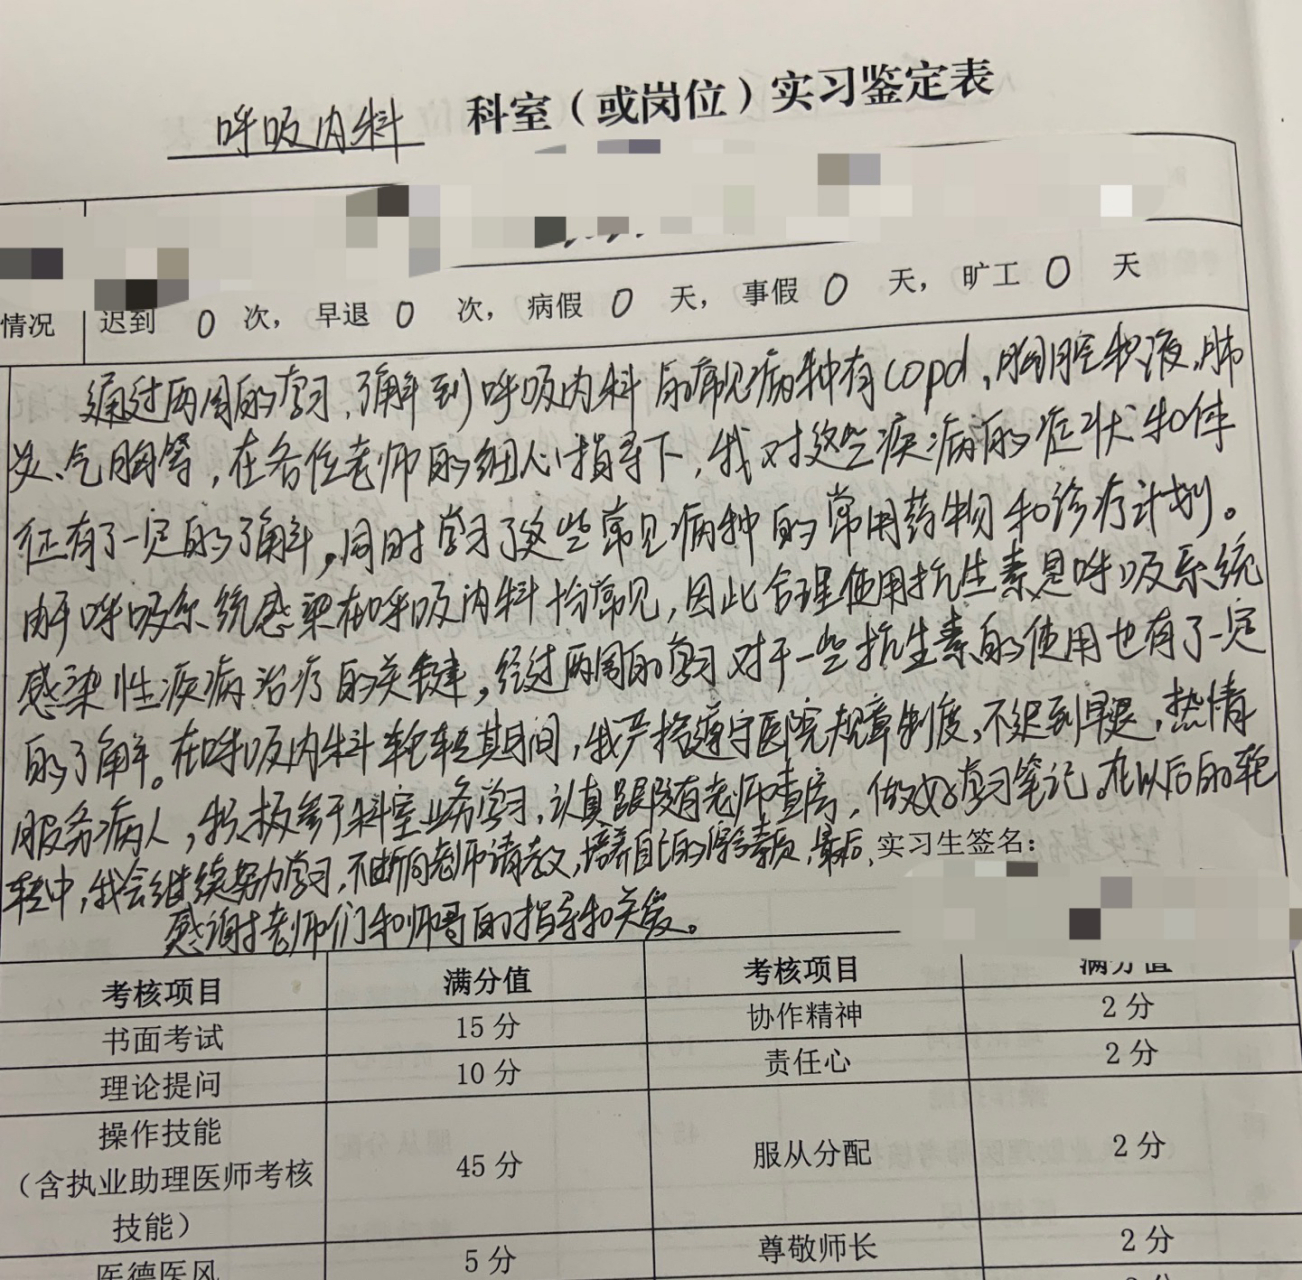 呼吸内科 科室（或岗位）实习鉴定表
情况 迟到 0 次，早退 0 次，病假 0 天，事假 0 天，旷工 0 天
通过两周的学习，了解到呼吸内科的常见病种有copd，胸腔积液、肺
炎、气胸等，在各位老师的细心指导下，我对这些疾病的症状和体
征有了一定的了解，同时学习了这些常见病种的常用药物和诊疗计划。
由于呼吸系统感染在呼吸内科均常见，因此合理使用抗生素是呼吸系统
感染性疾病治疗的关键，经过两周的学习对于一些抗生素的使用也有了一定
的了解。在呼吸内科轮转期间，我严格遵守医院规章制度，不迟到早退，热情
服务病人，积极参于科室业务学习，认真跟随老师查房，做好学习笔记。在以后的轮
转中，我会继续努力学习，不断向老师请教，培养自己的综合素质，最后，
实习生签名：
感谢老师们和师哥的指导和关爱。
考核项目 满分值 考核项目 满分值
书面考试 15 分 协作精神 2 分
理论提问 10 分 责任心 2 分
操作技能
（含执业助理医师考核
技能） 45 分 服从分配 2 分
医德医风 5 分 尊敬师长 2 分